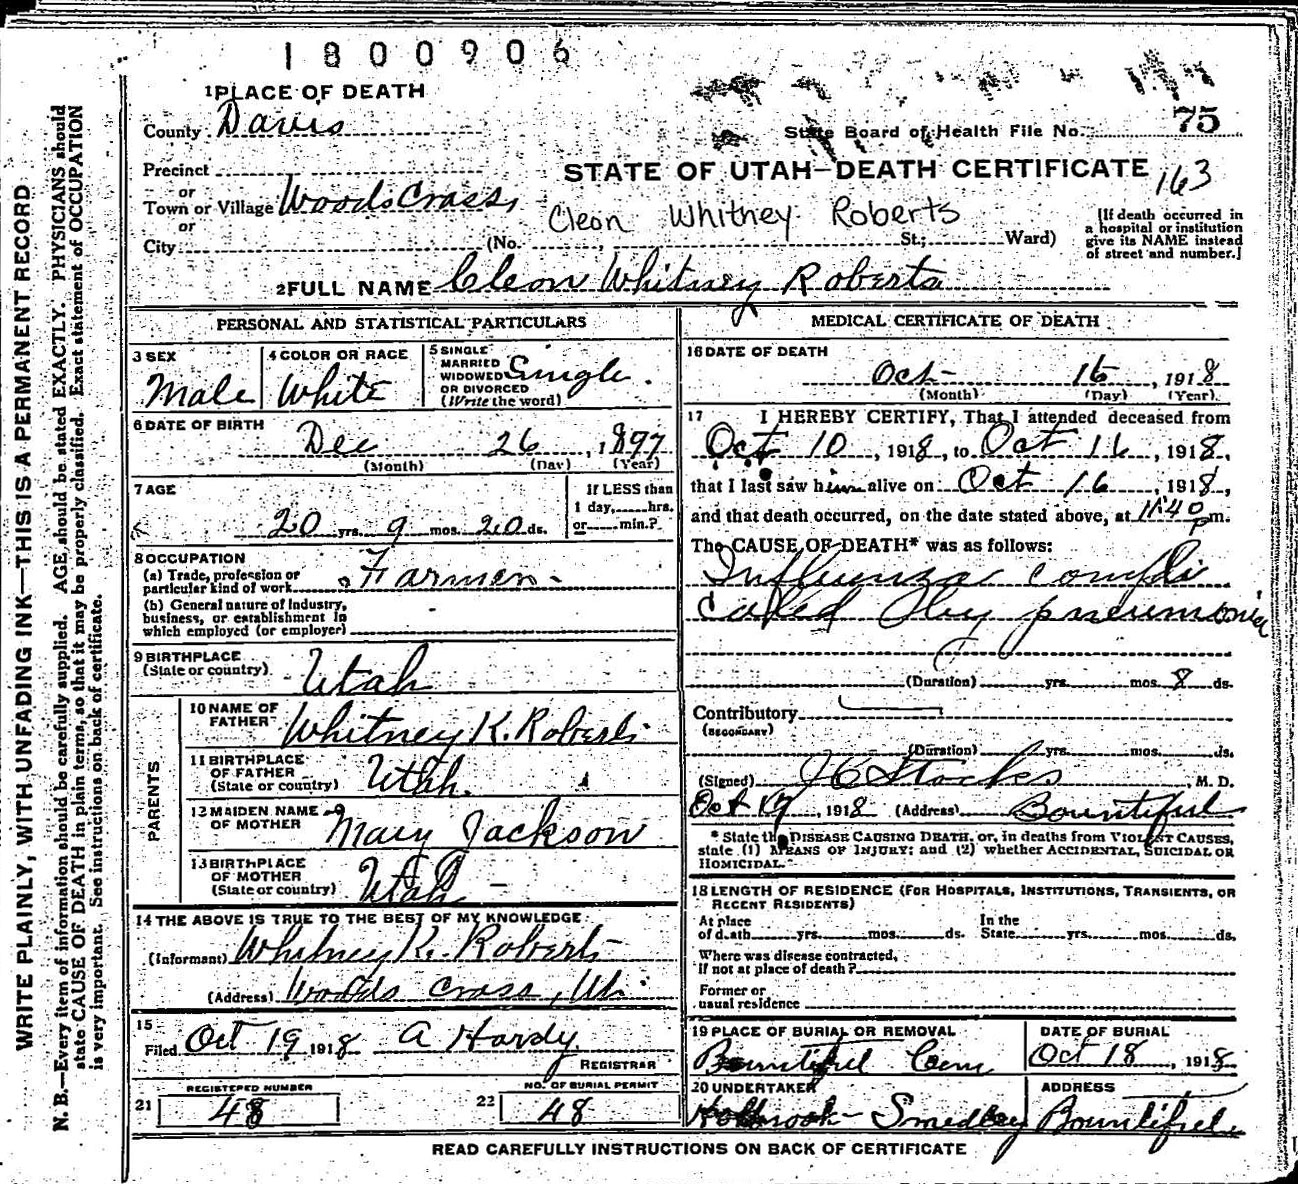 1800906
1 PLACE OF DEATH
County Davis
State Board of Health File No. 75
Precinct
STATE OF UTAH—DEATH CERTIFICATE 163
or
Town or Village Woods Cross
or
Cleon Whitney Roberts
City (No. , St.; Ward)
[If death occurred in
a hospital or institution
give its NAME instead
of street and number.]
2 FULL NAME Cleon Whitney Roberts
PERSONAL AND STATISTICAL PARTICULARS
3 SEX
Male
4 COLOR OR RACE
White
5 SINGLE
MARRIED
WIDOWED
OR DIVORCED
(Write the word)
Single.
6 DATE OF BIRTH
Dec 26, 1897
(Month) (Day) (Year)
7 AGE
20 yrs. 9 mos. 20 ds.
If LESS than
1 day, hrs.
or min.?
8 OCCUPATION
(a) Trade, profession or
particular kind of work Farmer
(b) General nature of Industry,
business, or establishment in
which employed (or employer)
9 BIRTHPLACE
(State or country) Utah
PARENTS
10 NAME OF
FATHER Whitney K. Roberts
11 BIRTHPLACE
OF FATHER
(State or country) Utah.
12 MAIDEN NAME
OF MOTHER Mary Jackson
13 BIRTHPLACE
OF MOTHER
(State or country) Utah
14 THE ABOVE IS TRUE TO THE BEST OF MY KNOWLEDGE
(Informant) Whitney K. Roberts
(Address) Woods Cross, Ut.
15
Filed Oct 19 1918 A Hardy
REGISTRAR
REGISTERED NUMBER
21 48
NO. OF BURIAL PERMIT
22 48
MEDICAL CERTIFICATE OF DEATH
16 DATE OF DEATH
Oct 16, 1918
(Month) (Day) (Year)
17 I HEREBY CERTIFY, That I attended deceased from
Oct 10, 1918, to Oct 16, 1918,
that I last saw him alive on Oct 16, 1918,
and that death occurred, on the date stated above, at 11:40 p m.
The CAUSE OF DEATH* was as follows:
Influenza compli
cated by pneumonia
(Duration) yrs. mos. 8 ds.
Contributory
(SECONDARY)
(Duration) yrs. mos. ds.
(Signed) J C Stocks, M. D.
Oct 17, 1918 (Address) Bountiful
* State the DISEASE CAUSING DEATH, or, in deaths from VIOLENT CAUSES,
state (1) MEANS OF INJURY; and (2) whether ACCIDENTAL, SUICIDAL OR
HOMICIDAL.
18 LENGTH OF RESIDENCE (FOR HOSPITALS, INSTITUTIONS, TRANSIENTS, OR
RECENT RESIDENTS)
At place
of death yrs. mos. ds.
In the
State yrs. mos. ds.
Where was disease contracted,
if not at place of death?
Former or
usual residence
19 PLACE OF BURIAL OR REMOVAL
Bountiful Cem
DATE OF BURIAL
Oct 18, 1918
20 UNDERTAKER
Holbrook - Smedley
ADDRESS
Bountiful
READ CAREFULLY INSTRUCTIONS ON BACK OF CERTIFICATE
WRITE PLAINLY, WITH UNFADING INK—THIS IS A PERMANENT RECORD
N. B.—Every item of information should be carefully supplied. AGE should be stated EXACTLY. PHYSICIANS should
state CAUSE OF DEATH in plain terms, so that it may be properly classified. Exact statement of OCCUPATION
is very important. See instructions on back of certificate.